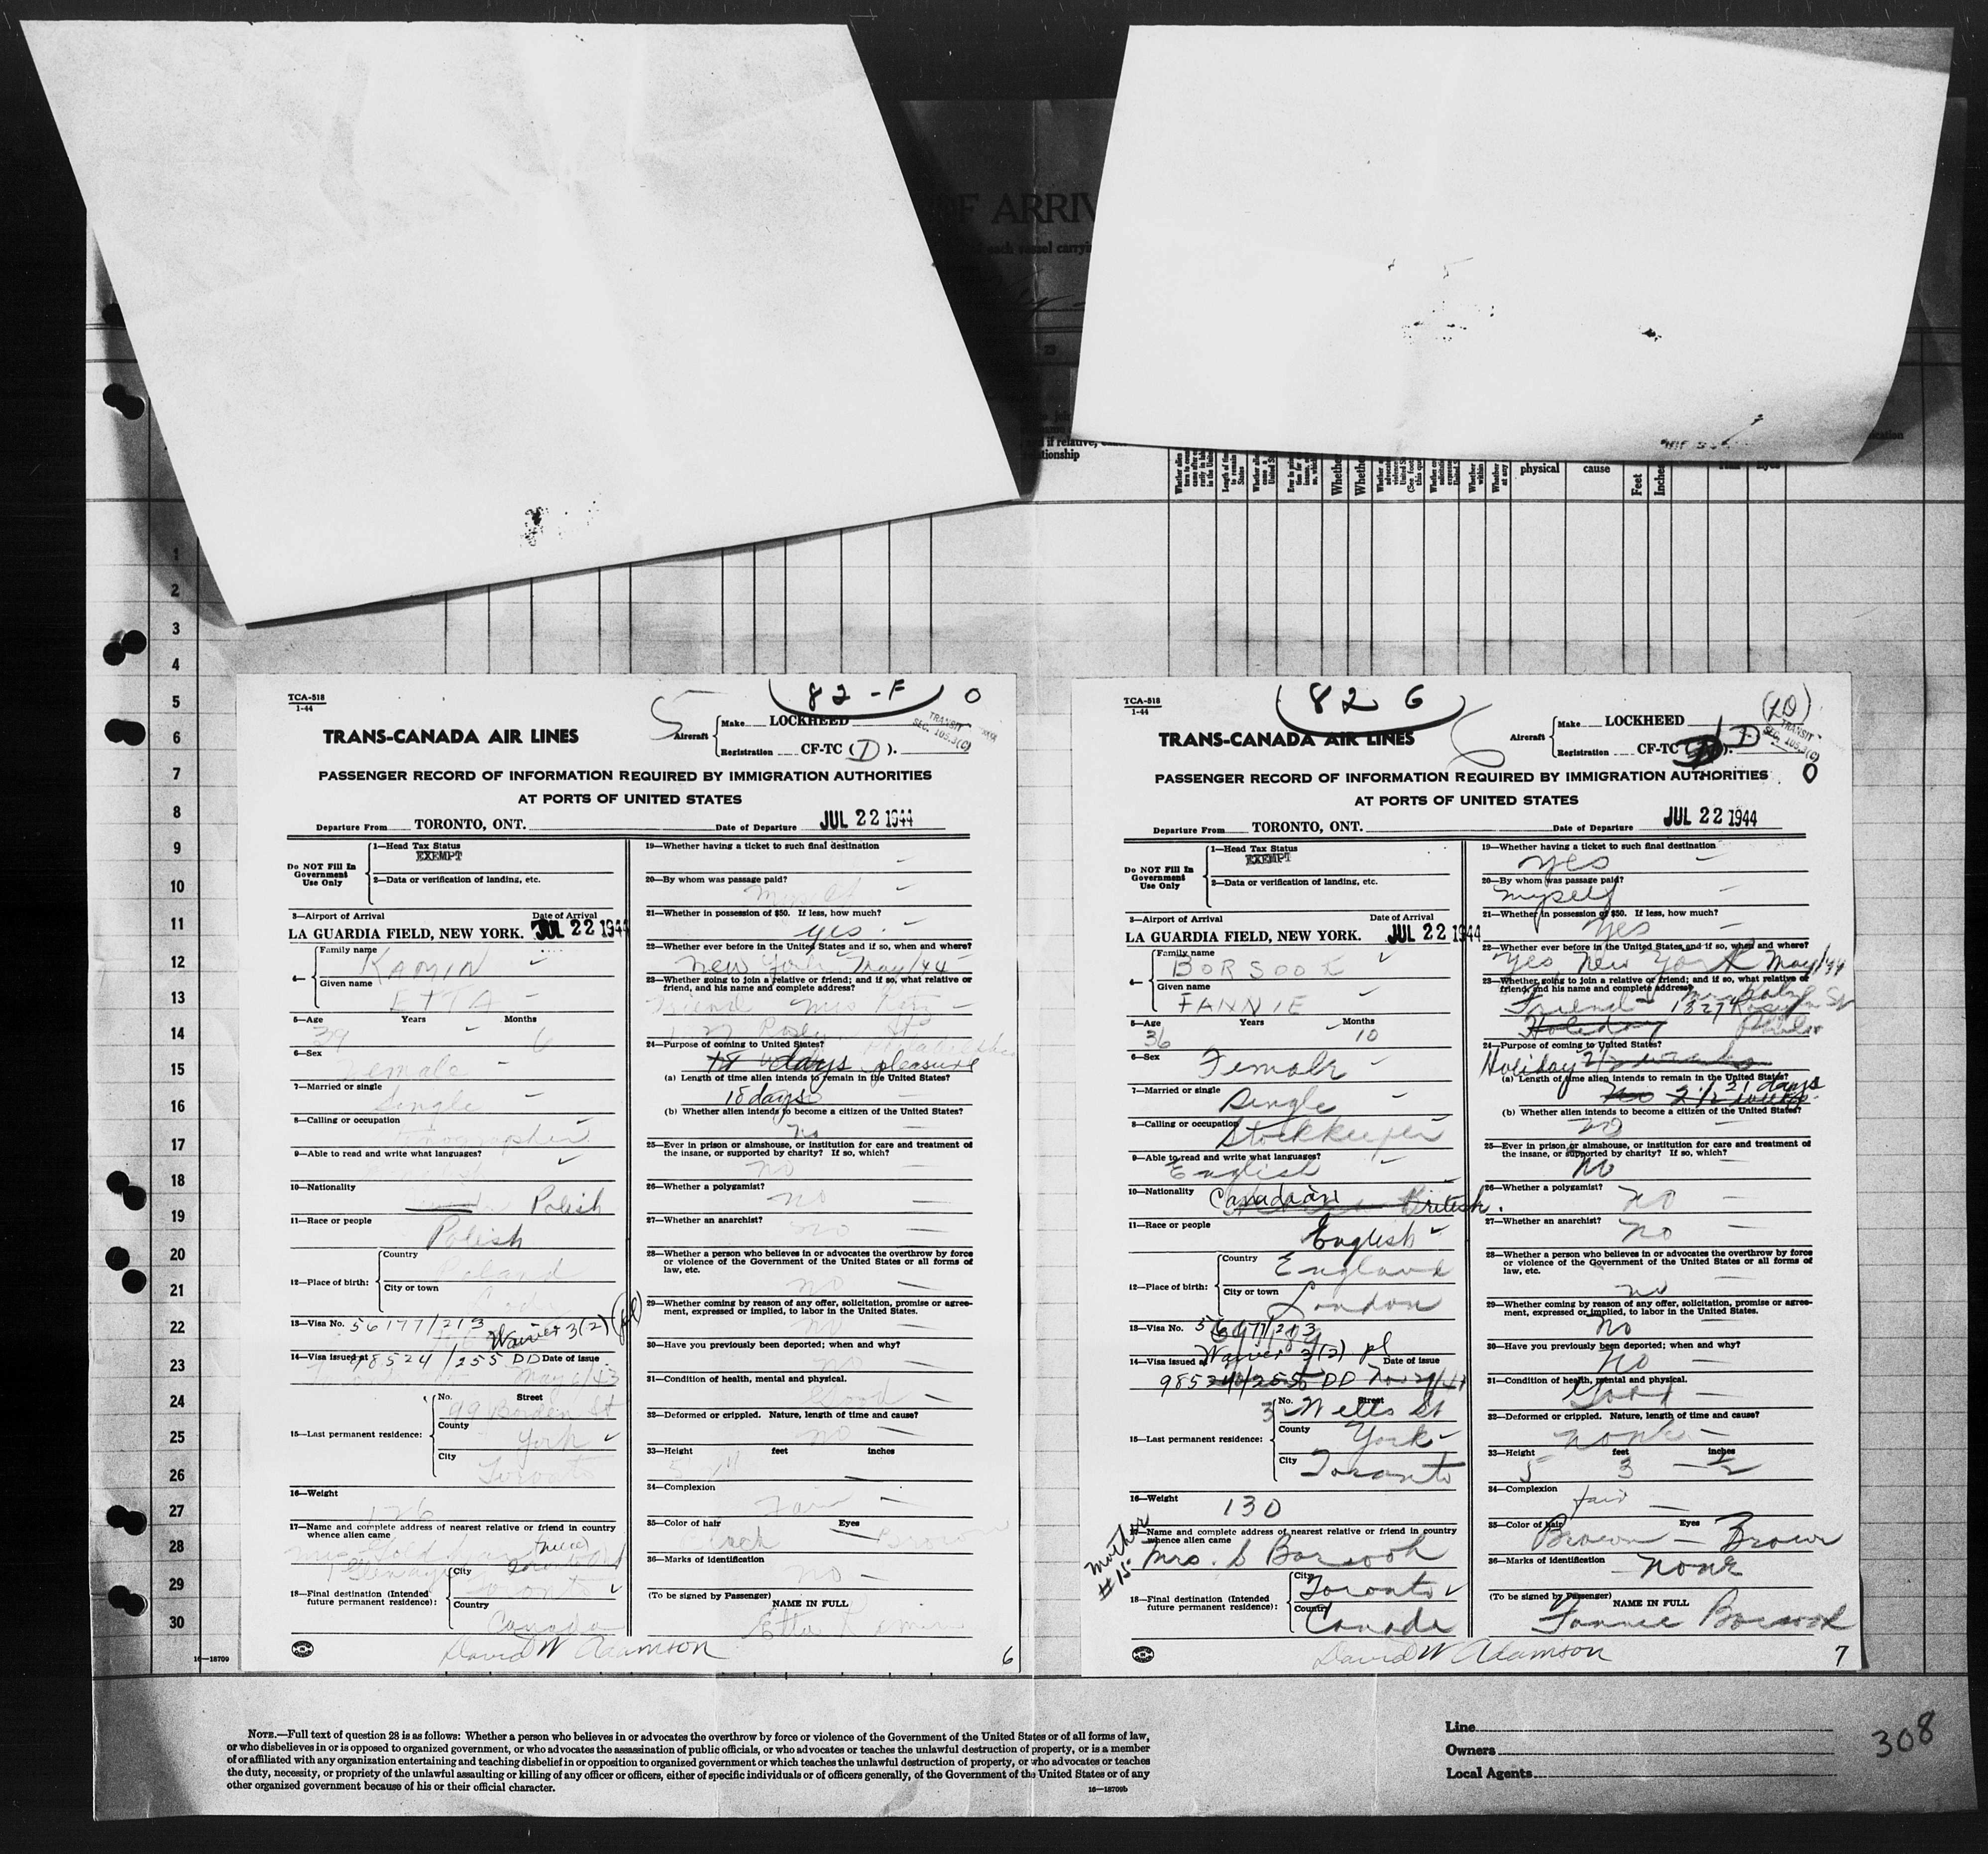 F ARRIV
each vessel carryi
23
and if relative,
relationship
physical
cause
Feet
Inches
1
2
3
4
5
6
7
8
9
10
11
12
13
14
15
16
17
18
19
20
21
22
23
24
25
26
27
28
29
30
16—18709
TCA-518
1-44
82-F
0
5
TRANS-CANADA AIR LINES
Aircraft
Make LOCKHEED
Registration CF-TC (D).
TRANSIT
SEC. 105.3(C)
PASSENGER RECORD OF INFORMATION REQUIRED BY IMMIGRATION AUTHORITIES
AT PORTS OF UNITED STATES
Departure From TORONTO, ONT. Date of Departure JUL 22 1944
Do NOT Fill In Government Use Only
1—Head Tax Status
EXEMPT
2—Data or verification of landing, etc.
3—Airport of Arrival Date of Arrival
LA GUARDIA FIELD, NEW YORK. JUL 22 1944
4— Family name
KAMIN
Given name
ETTA
5—Age Years Months
6
6—Sex
Female
7—Married or single
Single
8—Calling or occupation
9—Able to read and write what languages?
10—Nationality
Polish
11—Race or people
Polish
12—Place of birth: Country
Poland
City or town
13—Visa No. 56177/213
Waiver 3(2)
14—Visa issued at 98524/255 DD Date of issue
May 6/43
15—Last permanent residence: No. Street
99 Borden St
County
York
City
Toronto
16—Weight
126
17—Name and complete address of nearest relative or friend in country
whence alien came
18—Final destination (Intended
future permanent residence): City
Toronto
Country
Canada
19—Whether having a ticket to such final destination
20—By whom was passage paid?
Myself
21—Whether in possession of $50. If less, how much?
yes
22—Whether ever before in the United States and if so, when and where?
New York May/44
23—Whether going to join a relative or friend; and if so, what relative or
friend, and his name and complete address?
Friend
24—Purpose of coming to United States?
18 days pleasure
(a) Length of time alien intends to remain in the United States?
18 days
(b) Whether alien intends to become a citizen of the United States?
no
25—Ever in prison or almshouse, or institution for care and treatment of
the insane, or supported by charity? If so, which?
no
26—Whether a polygamist?
no
27—Whether an anarchist?
no
28—Whether a person who believes in or advocates the overthrow by force
or violence of the Government of the United States or all forms of
law, etc.
no
29—Whether coming by reason of any offer, solicitation, promise or agree-
ment, expressed or implied, to labor in the United States.
no
30—Have you previously been deported; when and why?
no
31—Condition of health, mental and physical.
Good
32—Deformed or crippled. Nature, length of time and cause?
no
33—Height feet inches
34—Complexion
Fair
35—Color of hair Eyes
Brown
36—Marks of identification
no
(To be signed by Passenger) NAME IN FULL
Etta Kamin
David W Adamson
6
TCA-518
1-44
82 G
6
(10)
TRANS-CANADA AIR LINES
Aircraft
Make LOCKHEED
Registration CF-TC ( ). D
TRANSIT
SEC. 105.3(C)
0
PASSENGER RECORD OF INFORMATION REQUIRED BY IMMIGRATION AUTHORITIES
AT PORTS OF UNITED STATES
Departure From TORONTO, ONT. Date of Departure JUL 22 1944
Do NOT Fill In Government Use Only
1—Head Tax Status
EXEMPT
2—Data or verification of landing, etc.
3—Airport of Arrival Date of Arrival
LA GUARDIA FIELD, NEW YORK. JUL 22 1944
4— Family name
BORSOOK
Given name
FANNIE
5—Age Years Months
36 10
6—Sex
Female
7—Married or single
Single
8—Calling or occupation
Stockkeeper
9—Able to read and write what languages?
English
10—Nationality
Canadian British.
11—Race or people
English
12—Place of birth: Country
England
City or town
London
13—Visa No. 56177/213
Waiver 3(2) pl
14—Visa issued at Date of issue
98524/255 DD Nov 29/41
15—Last permanent residence: No. Street
3 Wells St
County
York
City
Toronto
16—Weight 130
17—Name and complete address of nearest relative or friend in country
whence alien came
Mother
#15
Mrs. S Borsook
18—Final destination (Intended
future permanent residence): City
Toronto
Country
Canada
19—Whether having a ticket to such final destination
yes
20—By whom was passage paid?
myself
21—Whether in possession of $50. If less, how much?
Yes
22—Whether ever before in the United States and if so, when and where?
yes, New York May/44
23—Whether going to join a relative or friend; and if so, what relative or
friend, and his name and complete address?
Friend 1327 St
Holiday Phila
24—Purpose of coming to United States?
Holiday 2½ weeks
(a) Length of time alien intends to remain in the United States?
no 2½ weeks 21 days
(b) Whether alien intends to become a citizen of the United States?
no
25—Ever in prison or almshouse, or institution for care and treatment of
the insane, or supported by charity? If so, which?
no
26—Whether a polygamist?
no
27—Whether an anarchist?
no
28—Whether a person who believes in or advocates the overthrow by force
or violence of the Government of the United States or all forms of
law, etc.
no
29—Whether coming by reason of any offer, solicitation, promise or agree-
ment, expressed or implied, to labor in the United States.
no
30—Have you previously been deported; when and why?
no
31—Condition of health, mental and physical.
Good
32—Deformed or crippled. Nature, length of time and cause?
none
33—Height feet inches
5 3 ½
34—Complexion
fair
35—Color of hair Eyes
Brown — Brown
36—Marks of identification
none
(To be signed by Passenger) NAME IN FULL
Fannie Borsook
David W Adamson
7
NOTE.—Full text of question 28 is as follows: Whether a person who believes in or advocates the overthrow by force or violence of the Government of the United States or of all forms of law,
or who disbelieves in or is opposed to organized government, or who advocates the assassination of public officials, or who advocates or teaches the unlawful destruction of property, or is a member
of or affiliated with any organization entertaining and teaching disbelief in or opposition to organized government or which teaches the unlawful destruction of property, or who advocates or teaches
the duty, necessity, or propriety of the unlawful assaulting or killing of any officer or officers, either of specific individuals or of officers generally, of the Government of the United States or of any
other organized government because of his or their official character.
16—18709b
Line
Owners
Local Agents
308